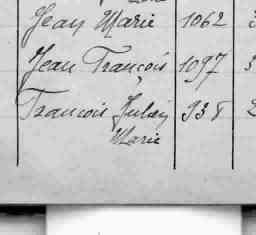 Jean Marie 1062 3
Jean François 1097 3
François Julien 938 2
Marie